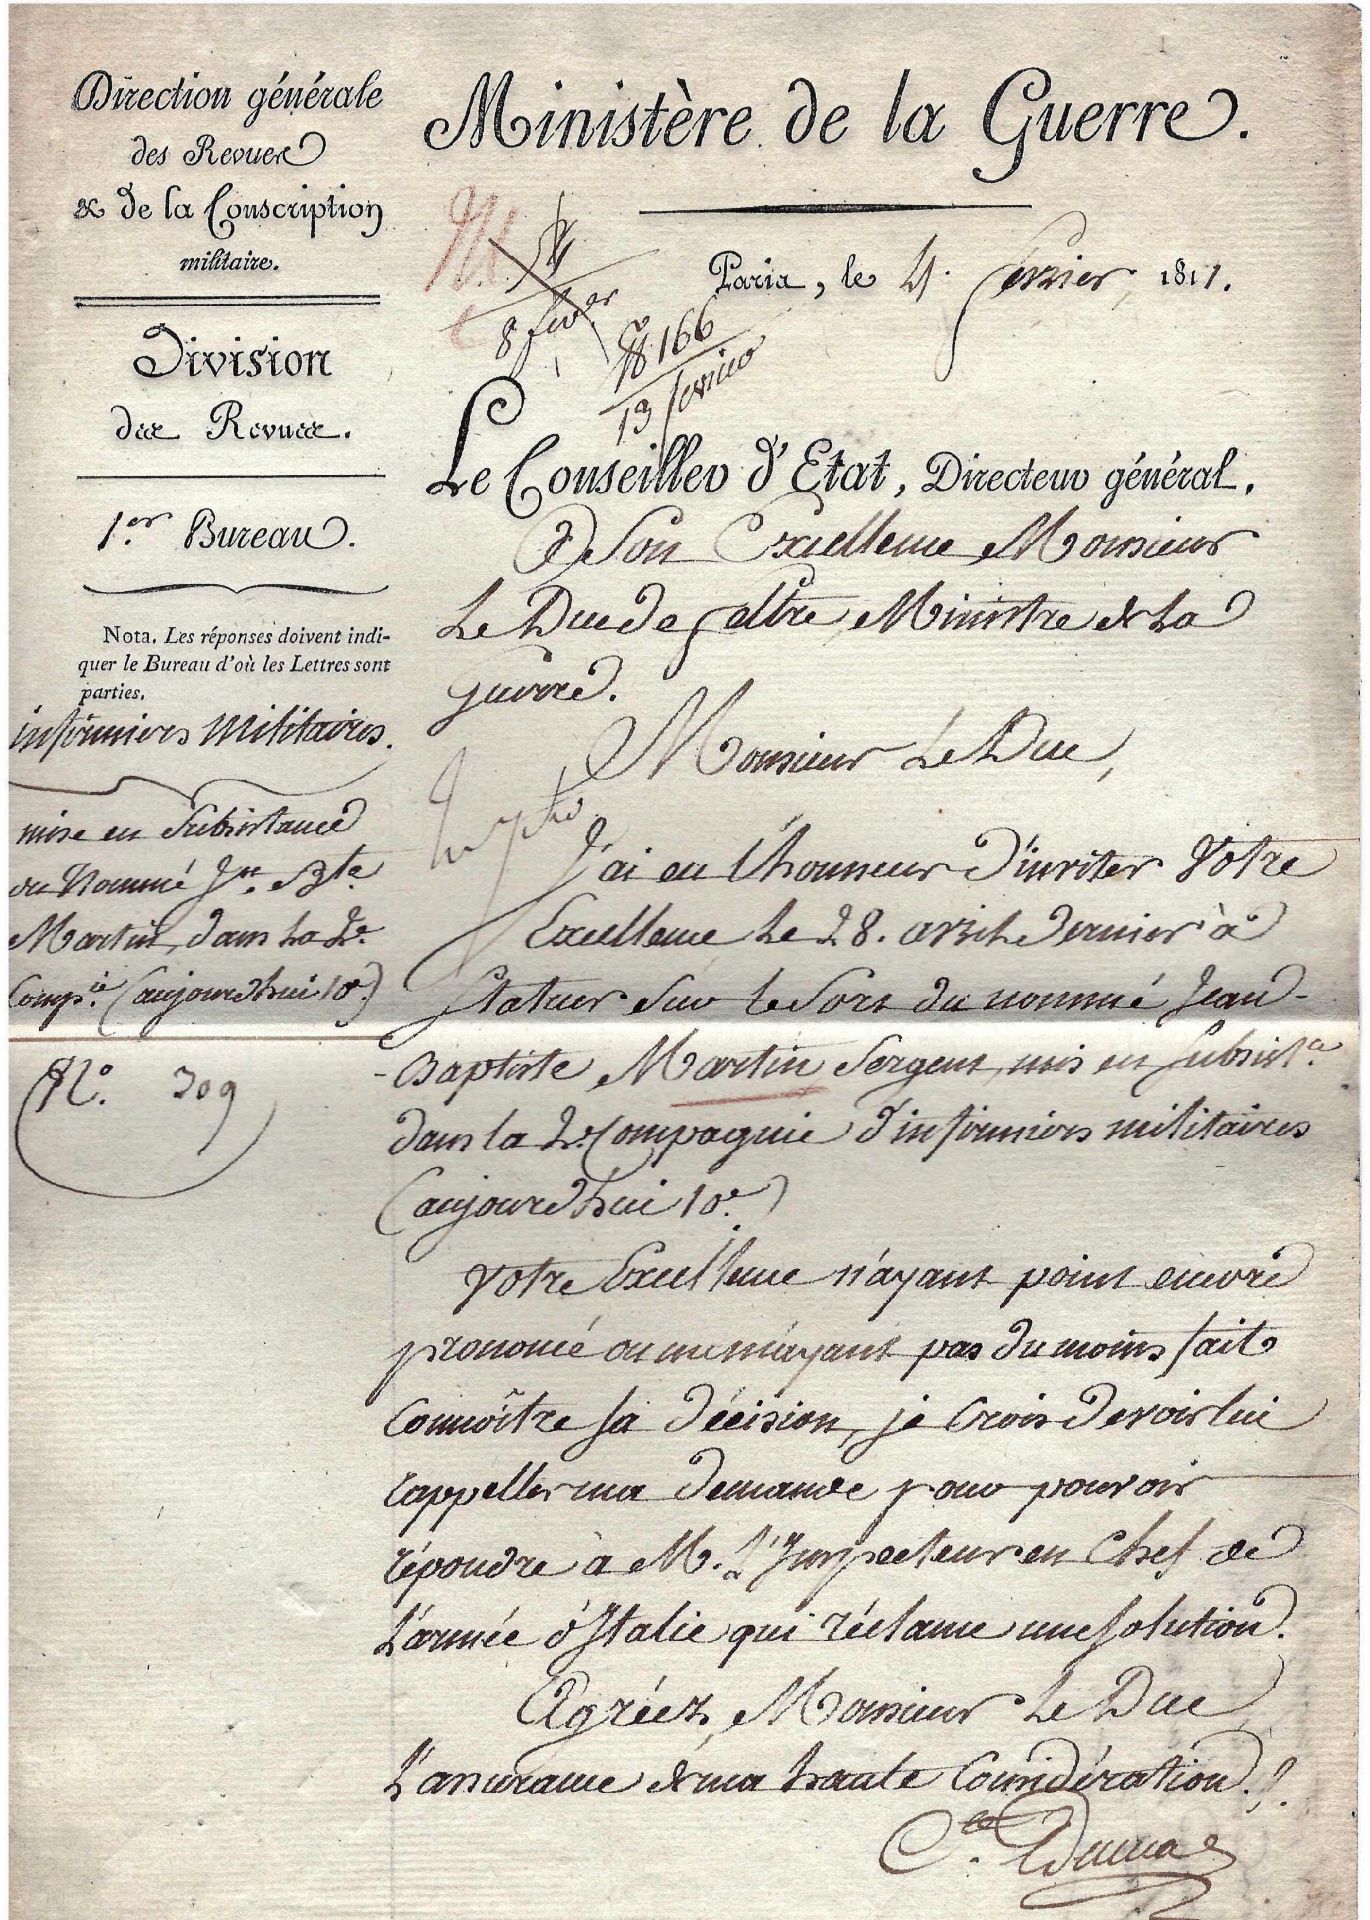 Direction générale
des Revues
& de la Conscription
militaire.
Division
des Revues.
1.er Bureau.
Nota. Les réponses doivent indi-
quer le Bureau d'où les Lettres sont
parties.
infirmiers Militaires.
mise en Subsistance
du Nommé Jn. Bte
Martin, dans la 2e.
Compie. (aujourd'hui 10e.)
No. 309
Ministère de la Guerre.
Paris, le 4 février, 1811.
8 fever
166
13 février
Le Conseiller d'Etat, Directeur général.
A Son Excellence, Monsieur
Le Duc de feltre, Ministre de La
Guerre.
Monsieur Le Duc,
J'ai eu l'honneur d'inviter Votre
Excellence, Le 28. avril dernier à
Statuer Sur le Sort du nommé Jean-
-Baptiste Martin Sergent, mis en Subsistce
dans la 2e. Compagnie d'infirmiers militaires
(aujourd'hui 10e.)
Votre Excellence n'ayant point encore
prononcé ou ne m'ayant pas du moins fait
Connoître sa décision, je Crois devoir lui
rappeller ma demande pour pouvoir
répondre à M. L'Inspecteur en Chef de
L'armée d'Italie qui réclame une solution.
Agréez, Monsieur Le Duc,
L'assurance de ma haute Considération.
Cte. Dumas